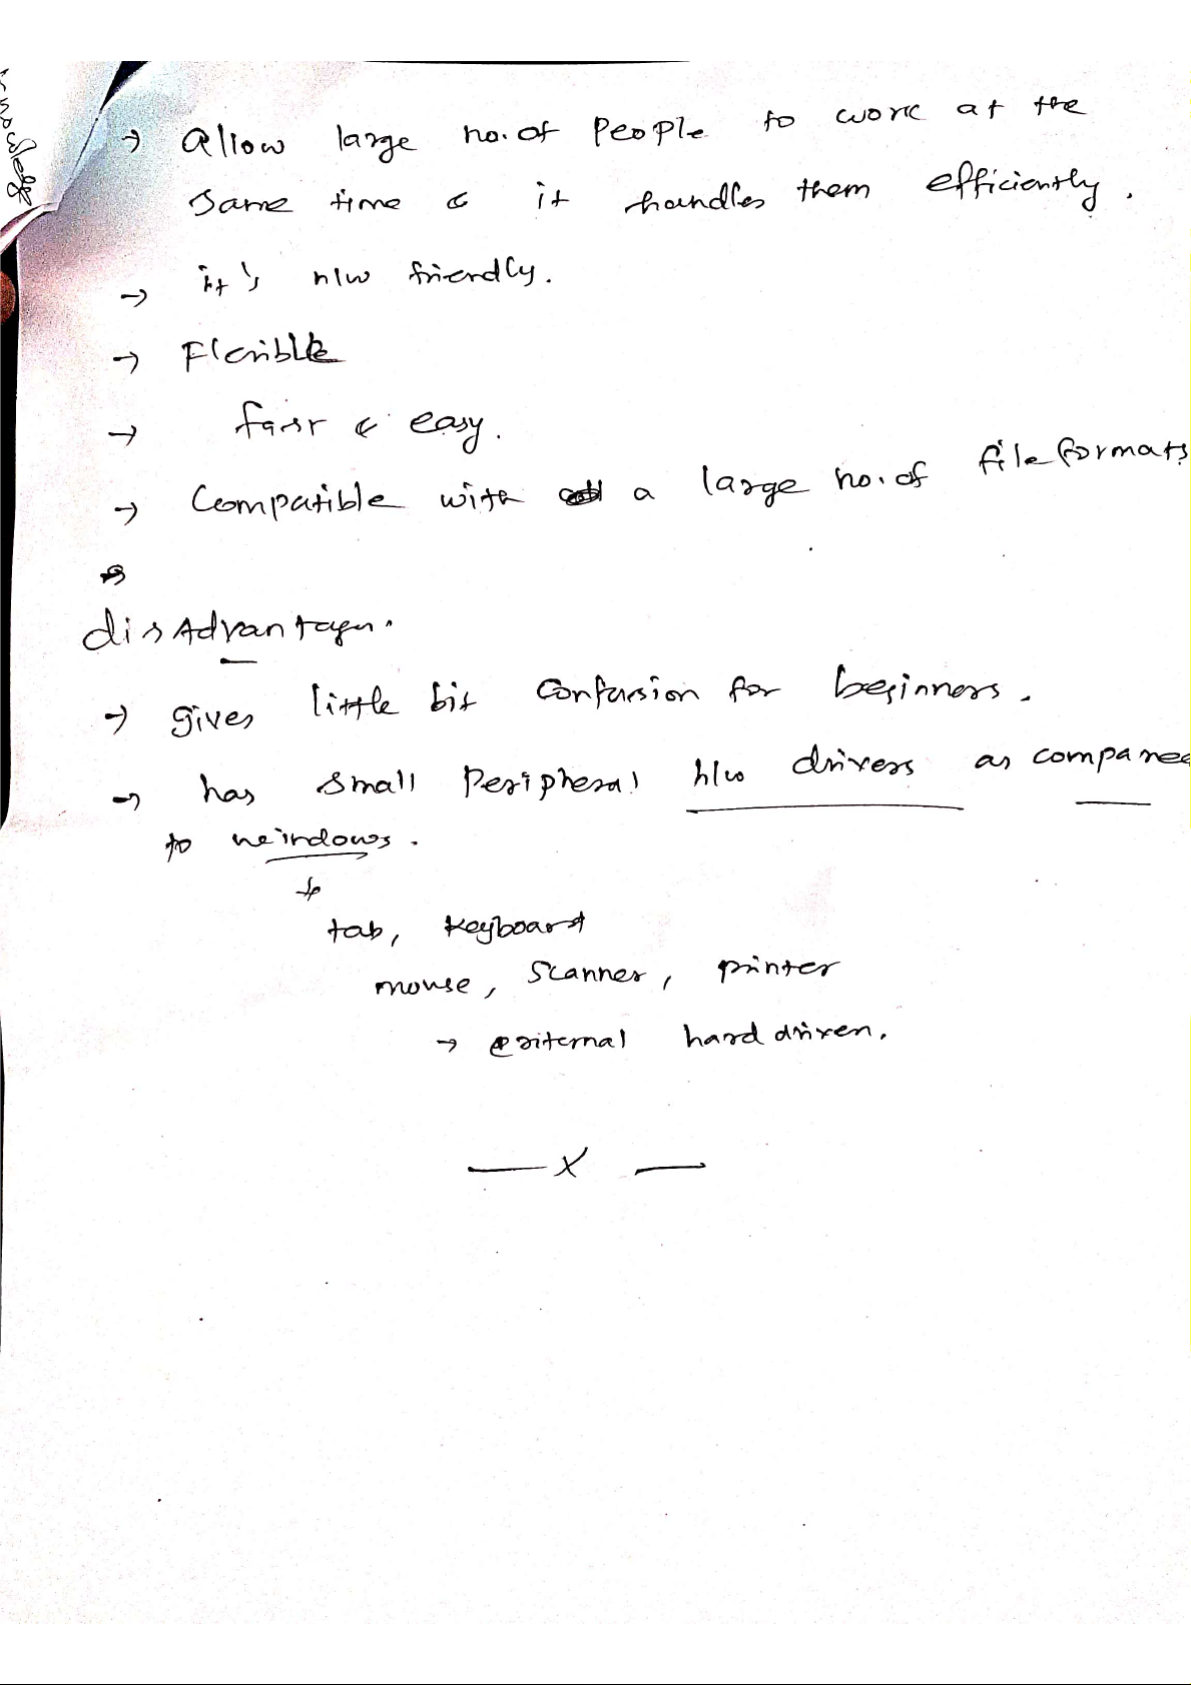 knowledge
→ Allow large no. of People to work at the
same time & it handles them efficiently.
→ it's n/w friendly.
→ Flexible
→ fast & easy.
→ Compatible with a large no. of file formats
disAdvantages.
→ gives little bit confusion for beginners.
→ has small Peripheral h/w drivers as compared
to windows.
tab, keyboard
mouse, scanner, printer
→ external hard drives.
— x —